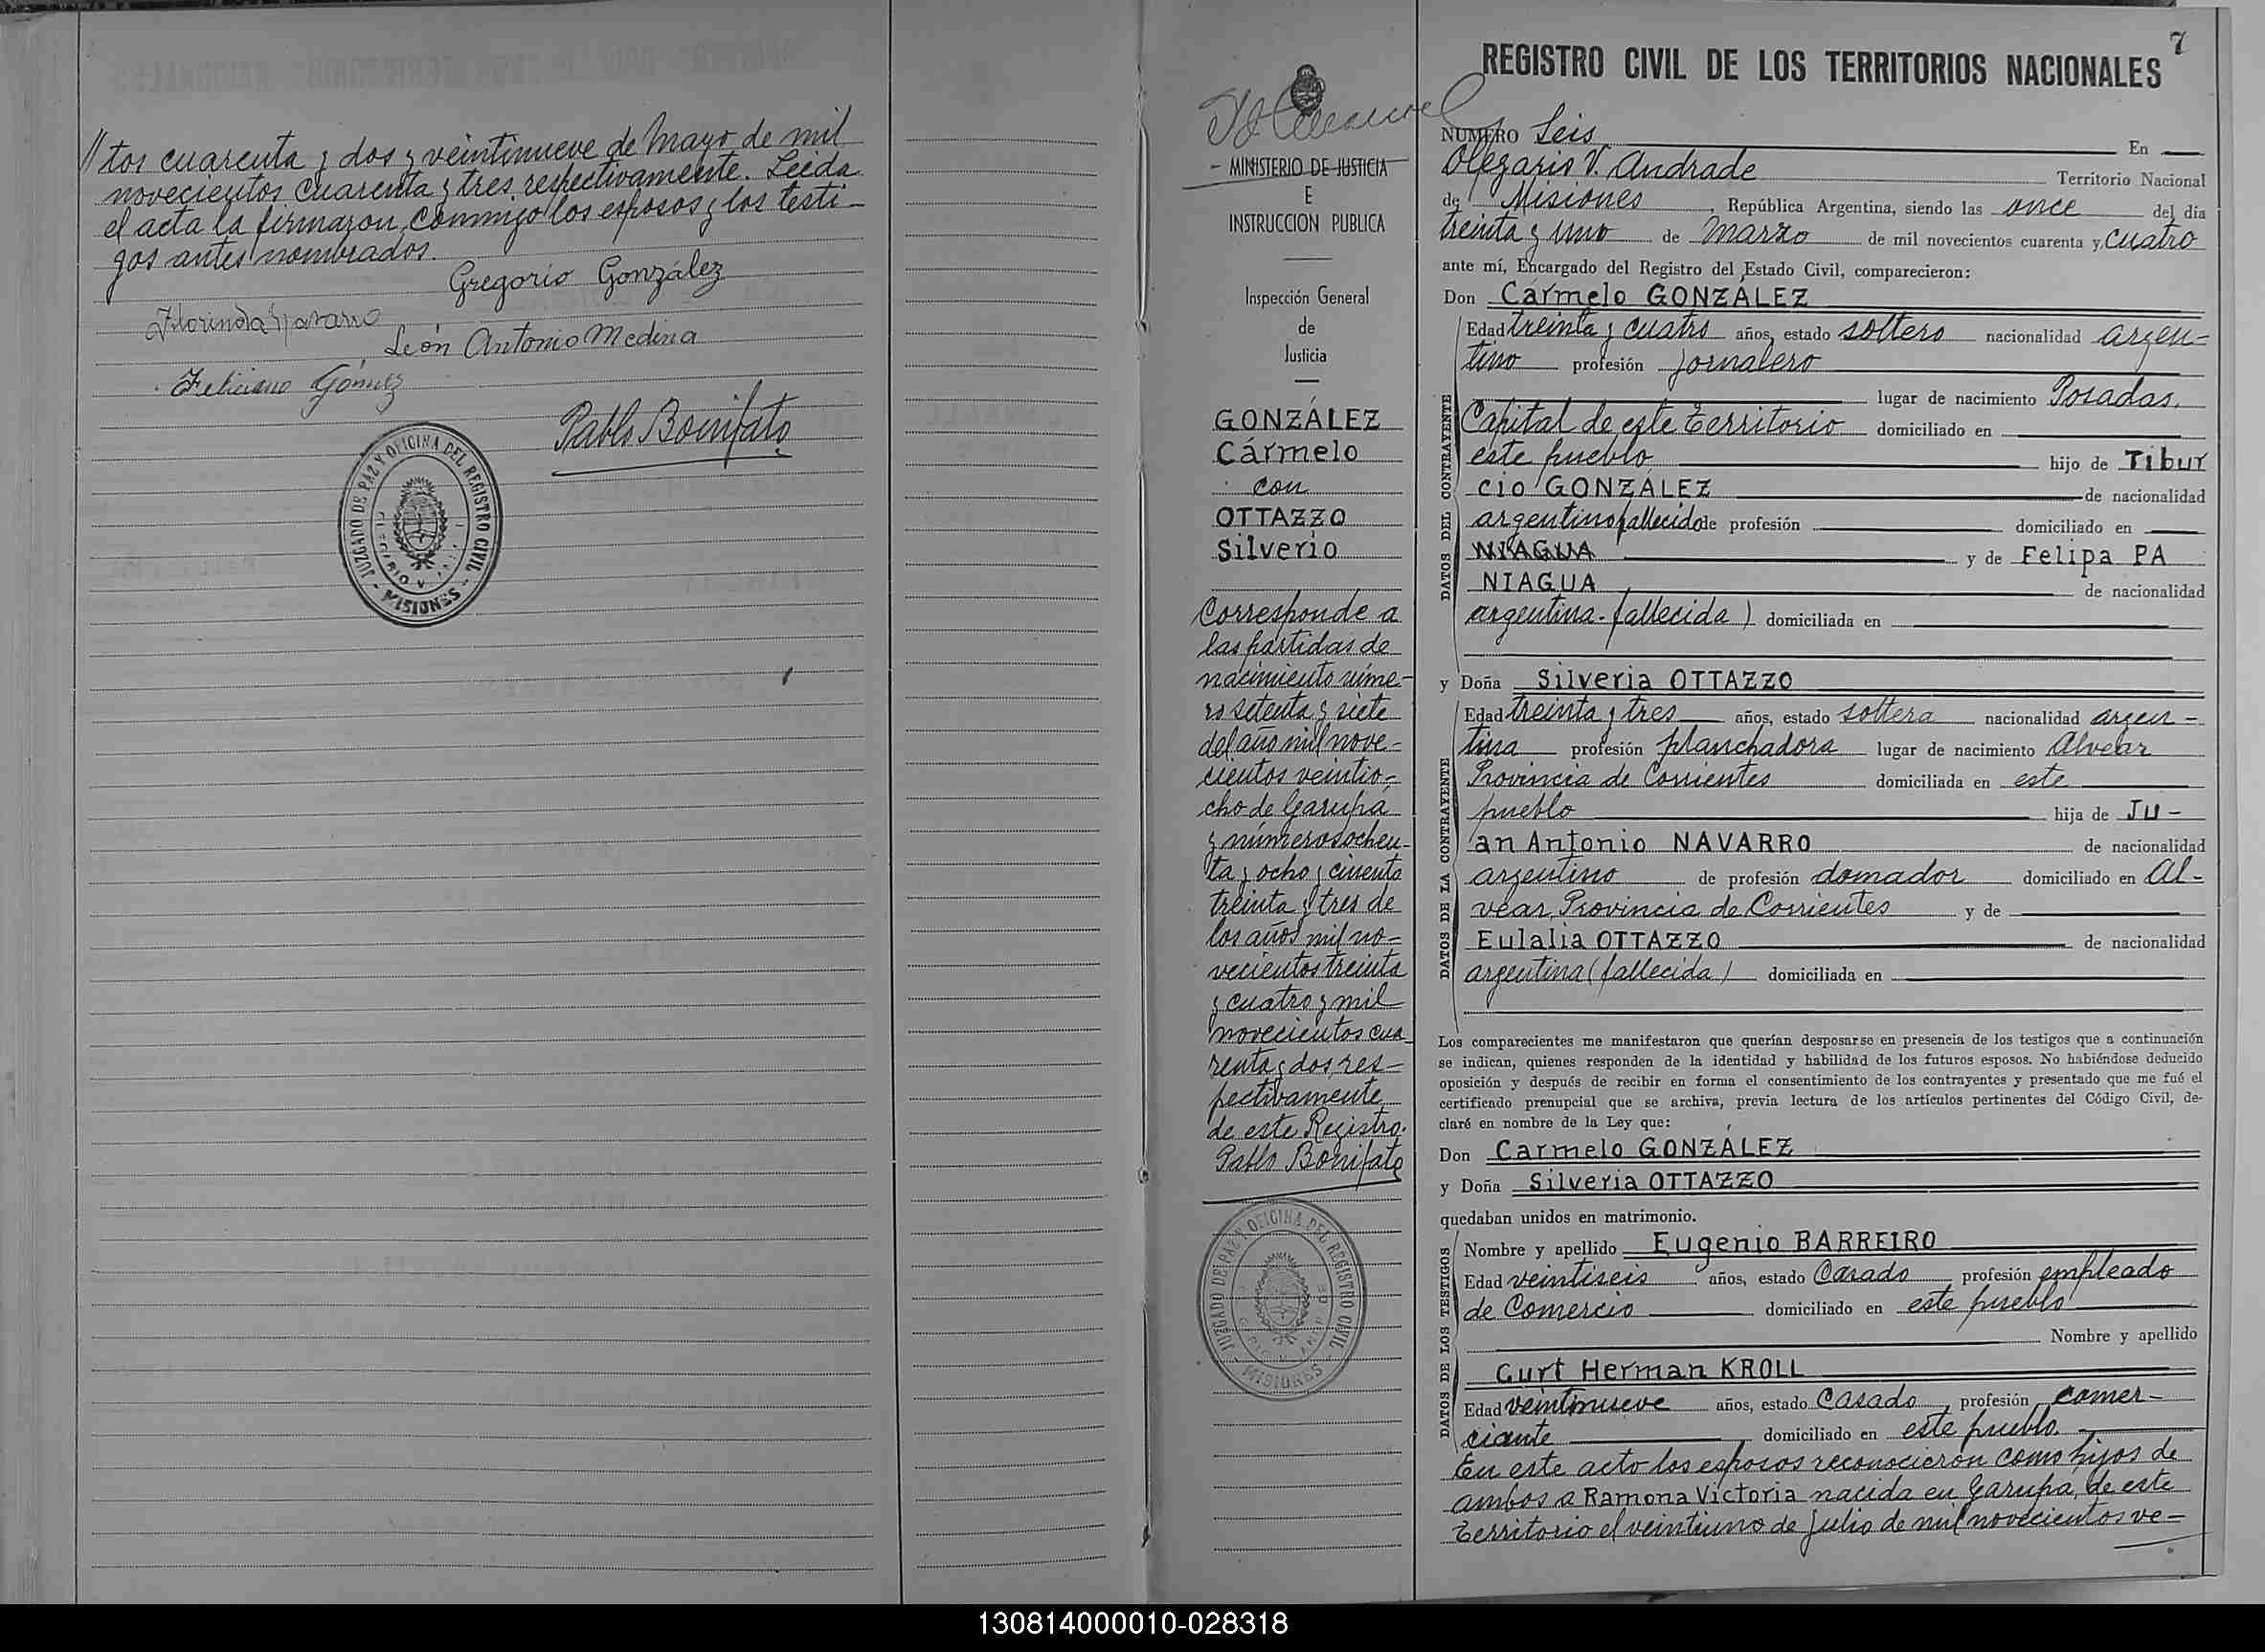 // tos cuarenta y dos y veintinueve de Mayo de mil
novecientos cuarenta y tres respectivamente. Leída
el acta la firmaron, conmigo los esposos y los testi-
gos antes nombrados.
Gregorio González
Florinda Navarro
León Antonio Medina
Feliciano Gómez
Pablo Bonifato
JUZGADO DE PAZ Y OFICINA DEL REGISTRO CIVIL
- MISIONES -
7
REGISTRO CIVIL DE LOS TERRITORIOS NACIONALES
- MINISTERIO DE JUSTICIA
E
INSTRUCCION PUBLICA
Inspección General
de
Justicia
GONZÁLEZ
Cármelo
con
OTTAZZO
Silverio
Corresponde a
las partidas de
nacimiento núme-
ro setenta y siete
del año mil nove-
cientos veintio-
cho de Garupá
y números ochen-
ta y ocho y ciento
treinta y tres de
los años mil no-
vecientos treinta
y cuatro y mil
novecientos cua
renta y dos, res-
pectivamente
de este Registro.
Pablo Bonifato
JUZGADO DE PAZ Y OFICINA DEL REGISTRO CIVIL
- MISIONES -
NUMERO Seis En
Olegario V. Andrade Territorio Nacional
de Misiones, República Argentina, siendo las once del día
treinta y uno de Marzo de mil novecientos cuarenta y cuatro
ante mí, Encargado del Registro del Estado Civil, comparecieron:
Don Cármelo GONZÁLEZ
DATOS DEL CONTRAYENTE
Edad treinta y cuatro años, estado soltero nacionalidad argen-
tino profesión jornalero
lugar de nacimiento Posadas,
Capital de este Territorio domiciliado en
este pueblo hijo de Tibur
cio GONZÁLEZ de nacionalidad
argentino fallecido de profesión domiciliado en
NIAGUA y de Felipa PA
NIAGUA de nacionalidad
argentina - fallecida) domiciliada en
y Doña Silveria OTTAZZO
DATOS DE LA CONTRAYENTE
Edad treinta y tres años, estado soltera nacionalidad argen-
tina profesión planchadora lugar de nacimiento Alvear
Provincia de Corrientes domiciliada en este
pueblo hija de JU-
an Antonio NAVARRO de nacionalidad
argentino de profesión domador domiciliado en Al-
vear, Provincia de Corrientes y de
Eulalia OTTAZZO de nacionalidad
argentina (fallecida) domiciliada en
Los comparecientes me manifestaron que querían desposarse en presencia de los testigos que a continuación
se indican, quienes responden de la identidad y habilidad de los futuros esposos. No habiéndose deducido
oposición y después de recibir en forma el consentimiento de los contrayentes y presentado que me fué el
certificado prenupcial que se archiva, previa lectura de los artículos pertinentes del Código Civil, de-
claré en nombre de la Ley que:
Don Carmelo GONZÁLEZ
y Doña Silveria OTTAZZO
quedaban unidos en matrimonio.
DATOS DE LOS TESTIGOS
Nombre y apellido Eugenio BARREIRO
Edad veintiseis años, estado Casado profesión empleado
de Comercio domiciliado en este pueblo
Nombre y apellido
Curt Herman KROLL
Edad veintinueve años, estado Casado, profesión comer-
ciante domiciliado en este pueblo.
En este acto los esposos reconocieron como hijos de
ambos a Ramona Victoria nacida en Garupá, de este
Territorio el veintiuno de julio de mil novecientos ve-
130814000010-028318